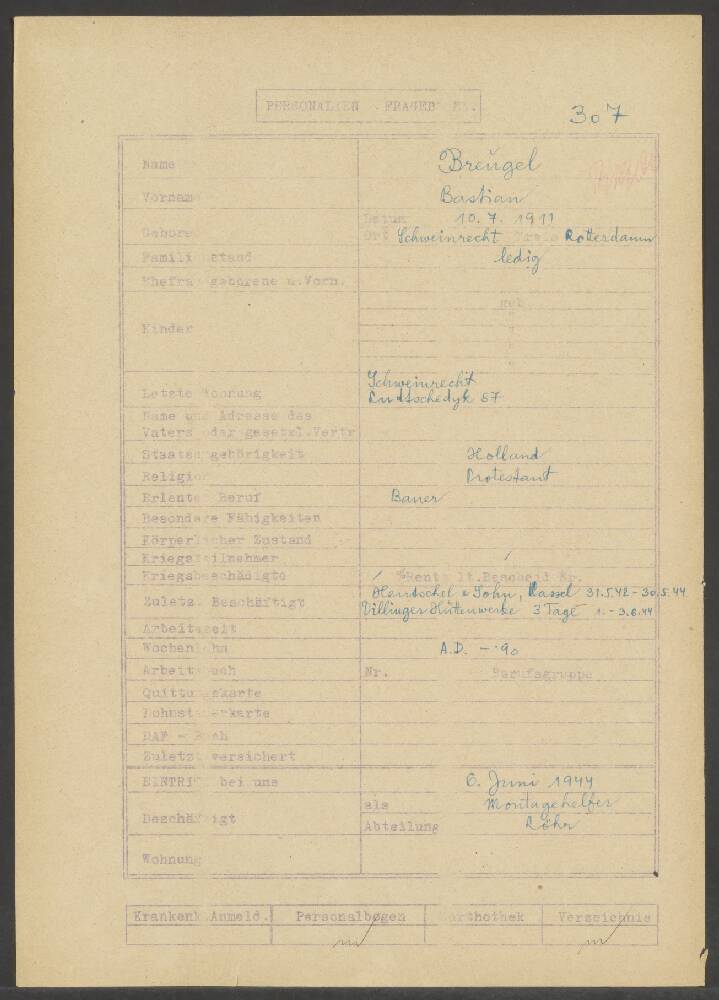 PERSONALIEN FRAGEB
307
Name Breugel
Vorname Bastian
Gebore Datum 10. 7. 1911
Ort Schweinrecht Kreis Rotterdamm
Famili stand ledig
Ehefra geborene u.Vorn.
geb
Kinder
Schweinrecht
Letzte Woonung Lindtschedyk 87
Name und Adresse des
Vaters oder gesetzl.Vertr
Staats gehörigkeit Holland
Religio Protestant
Erlente Beruf Bauer
Besondere Fähigkeiten
Körperlicher Zustand
Kriegsteilnehmer /
Kriegsbeschädigte / %Rent lt.Bescheid Nr.
Zuletz Beschäftigt Hentschel & Sohn, Kassel 31.5.42 - 30.5.44
Dillinger Hüttenwerke 3 Tage 1. - 3.6.44
Arbeitszeit
Wochenlohn A.D. - .90
Arbeit uch Nr. Berufsgruppe
Quittu skarte
Lohnst erkarte
DAF - B ch
Zuletzt versichert
EINTRI bei uns 6. Juni 1944
Beschäf igt als Montagehelfer
Abteilung Röhr
Wohnung
Krankenk Anmeld. Personalbogen arthothek Verzeichnis